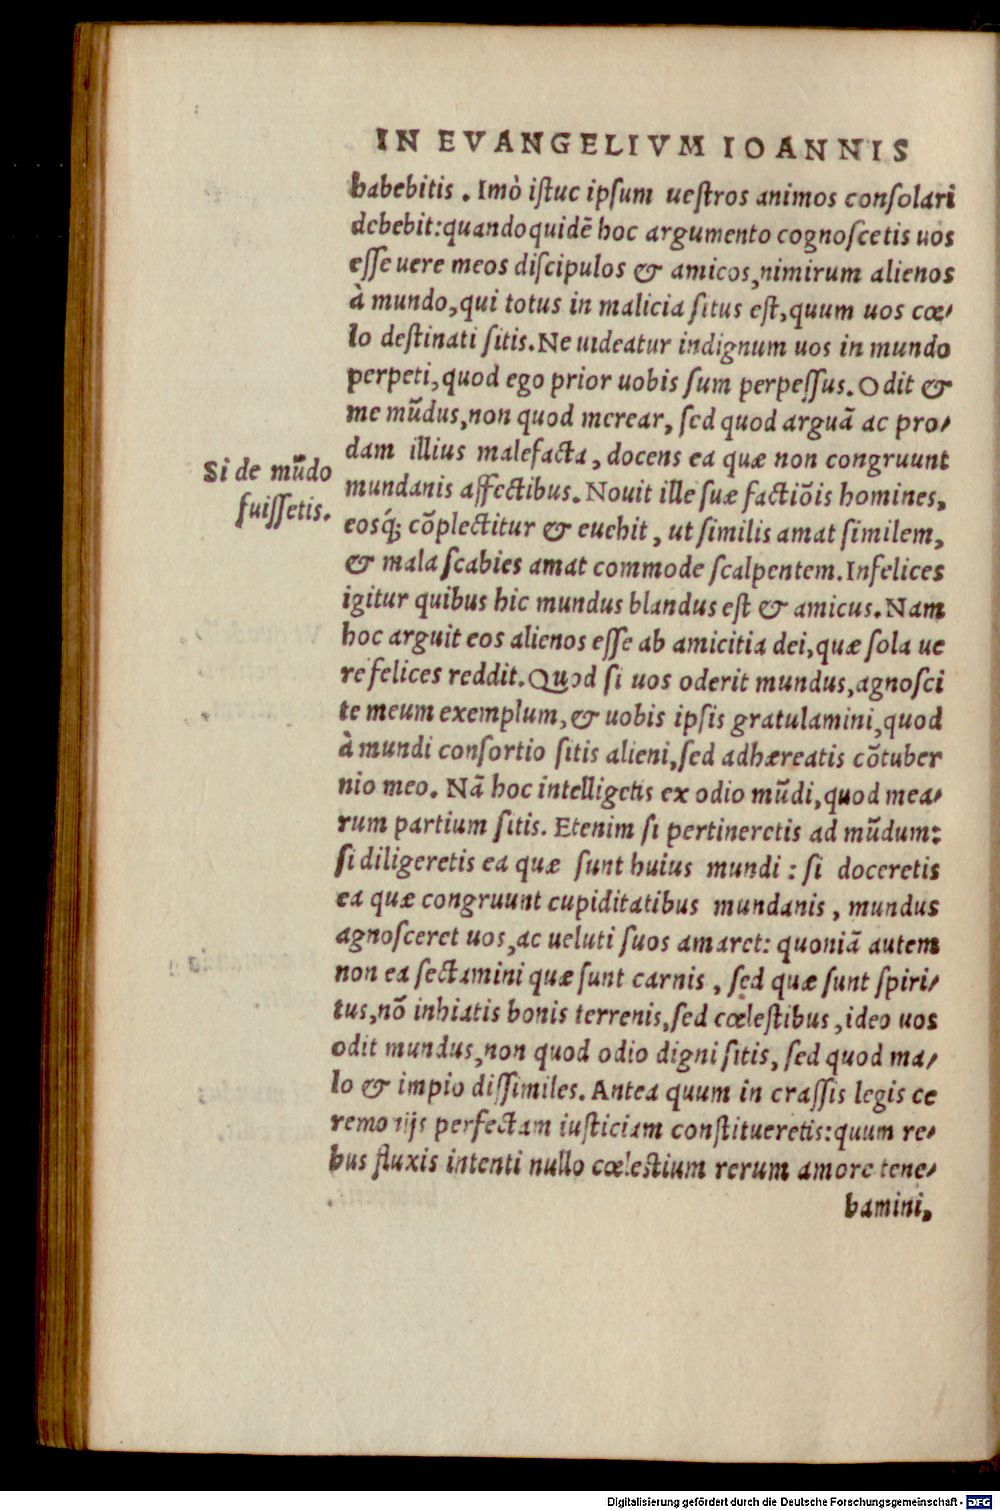 IN EVANGELIVM IOANNIS
habebitis . Imò istuc ipsum uestros animos consolari
debebit:quandoquidẽ hoc argumento cognoscetis uos
esse uere meos discipulos & amicos,nimirum alienos
à mundo,qui totus in malicia situs est,quum uos cœ-
lo destinati sitis.Ne uideatur indignum uos in mundo
perpeti,quod ego prior uobis sum perpessus.Odit &
me mũdus,non quod merear, sed quod arguã ac pro-
dam illius malefacta, docens ea quæ non congruunt
Si de mũdo
fuissetis.
mundanis affectibus. Nouit ille suæ factiõis homines,
eosq́; cõplectitur & euehit, ut similis amat similem,
& mala scabies amat commode scalpentem.Infelices
igitur quibus hic mundus blandus est & amicus.Nam
hoc arguit eos alienos esse ab amicitia dei,quæ sola ue
re felices reddit.Quod si uos oderit mundus,agnosci
te meum exemplum,& uobis ipsis gratulamini,quod
à mundi consortio sitis alieni,sed adhæreatis cõtuber
nio meo. Nã hoc intelligetis ex odio mũdi,quod mea-
rum partium sitis. Etenim si pertineretis ad mũdum:
si diligeretis ea quæ sunt huius mundi : si doceretis
ea quæ congruunt cupiditatibus mundanis, mundus
agnosceret uos,ac ueluti suos amaret: quoniã autem
non ea sectamini quæ sunt carnis, sed quæ sunt spiri-
tus,nõ inhiatis bonis terrenis,sed cœlestibus,ideo uos
odit mundus,non quod odio digni sitis, sed quod ma-
lo & impio dissimiles. Antea quum in crassis legis ce
remonijs perfectam iusticiam constitueretis:quum re-
bus fluxis intenti nullo cœlestium rerum amore tene-
bamini,
Digitalisierung gefördert durch die Deutsche Forschungsgemeinschaft - DFG